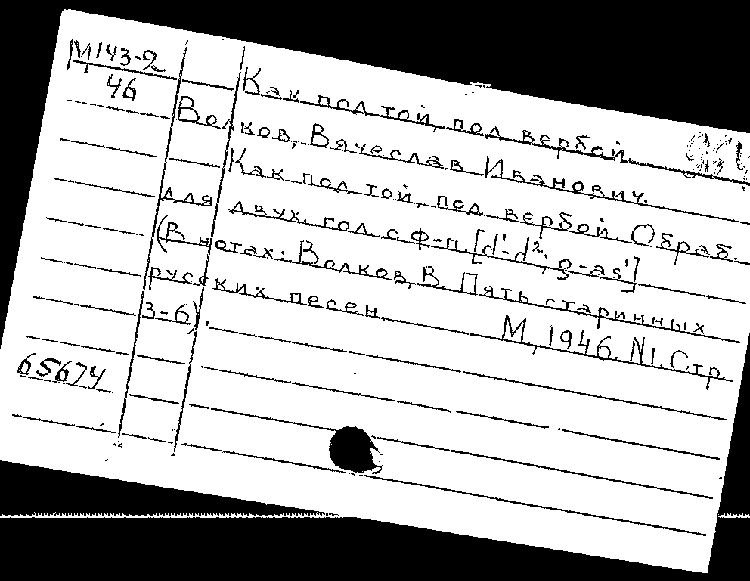 М143-2
46
Как под той, под вербой.
Волков, Вячеслав Иванович.
Как под той, под вербой. Обраб.
для двух. гол. с ф-п. [d¹-d², g-as¹]
(В нотах: Волков, В. Пять старинных
русских песен. М., 1946. №1. Стр.
3-6).
65674